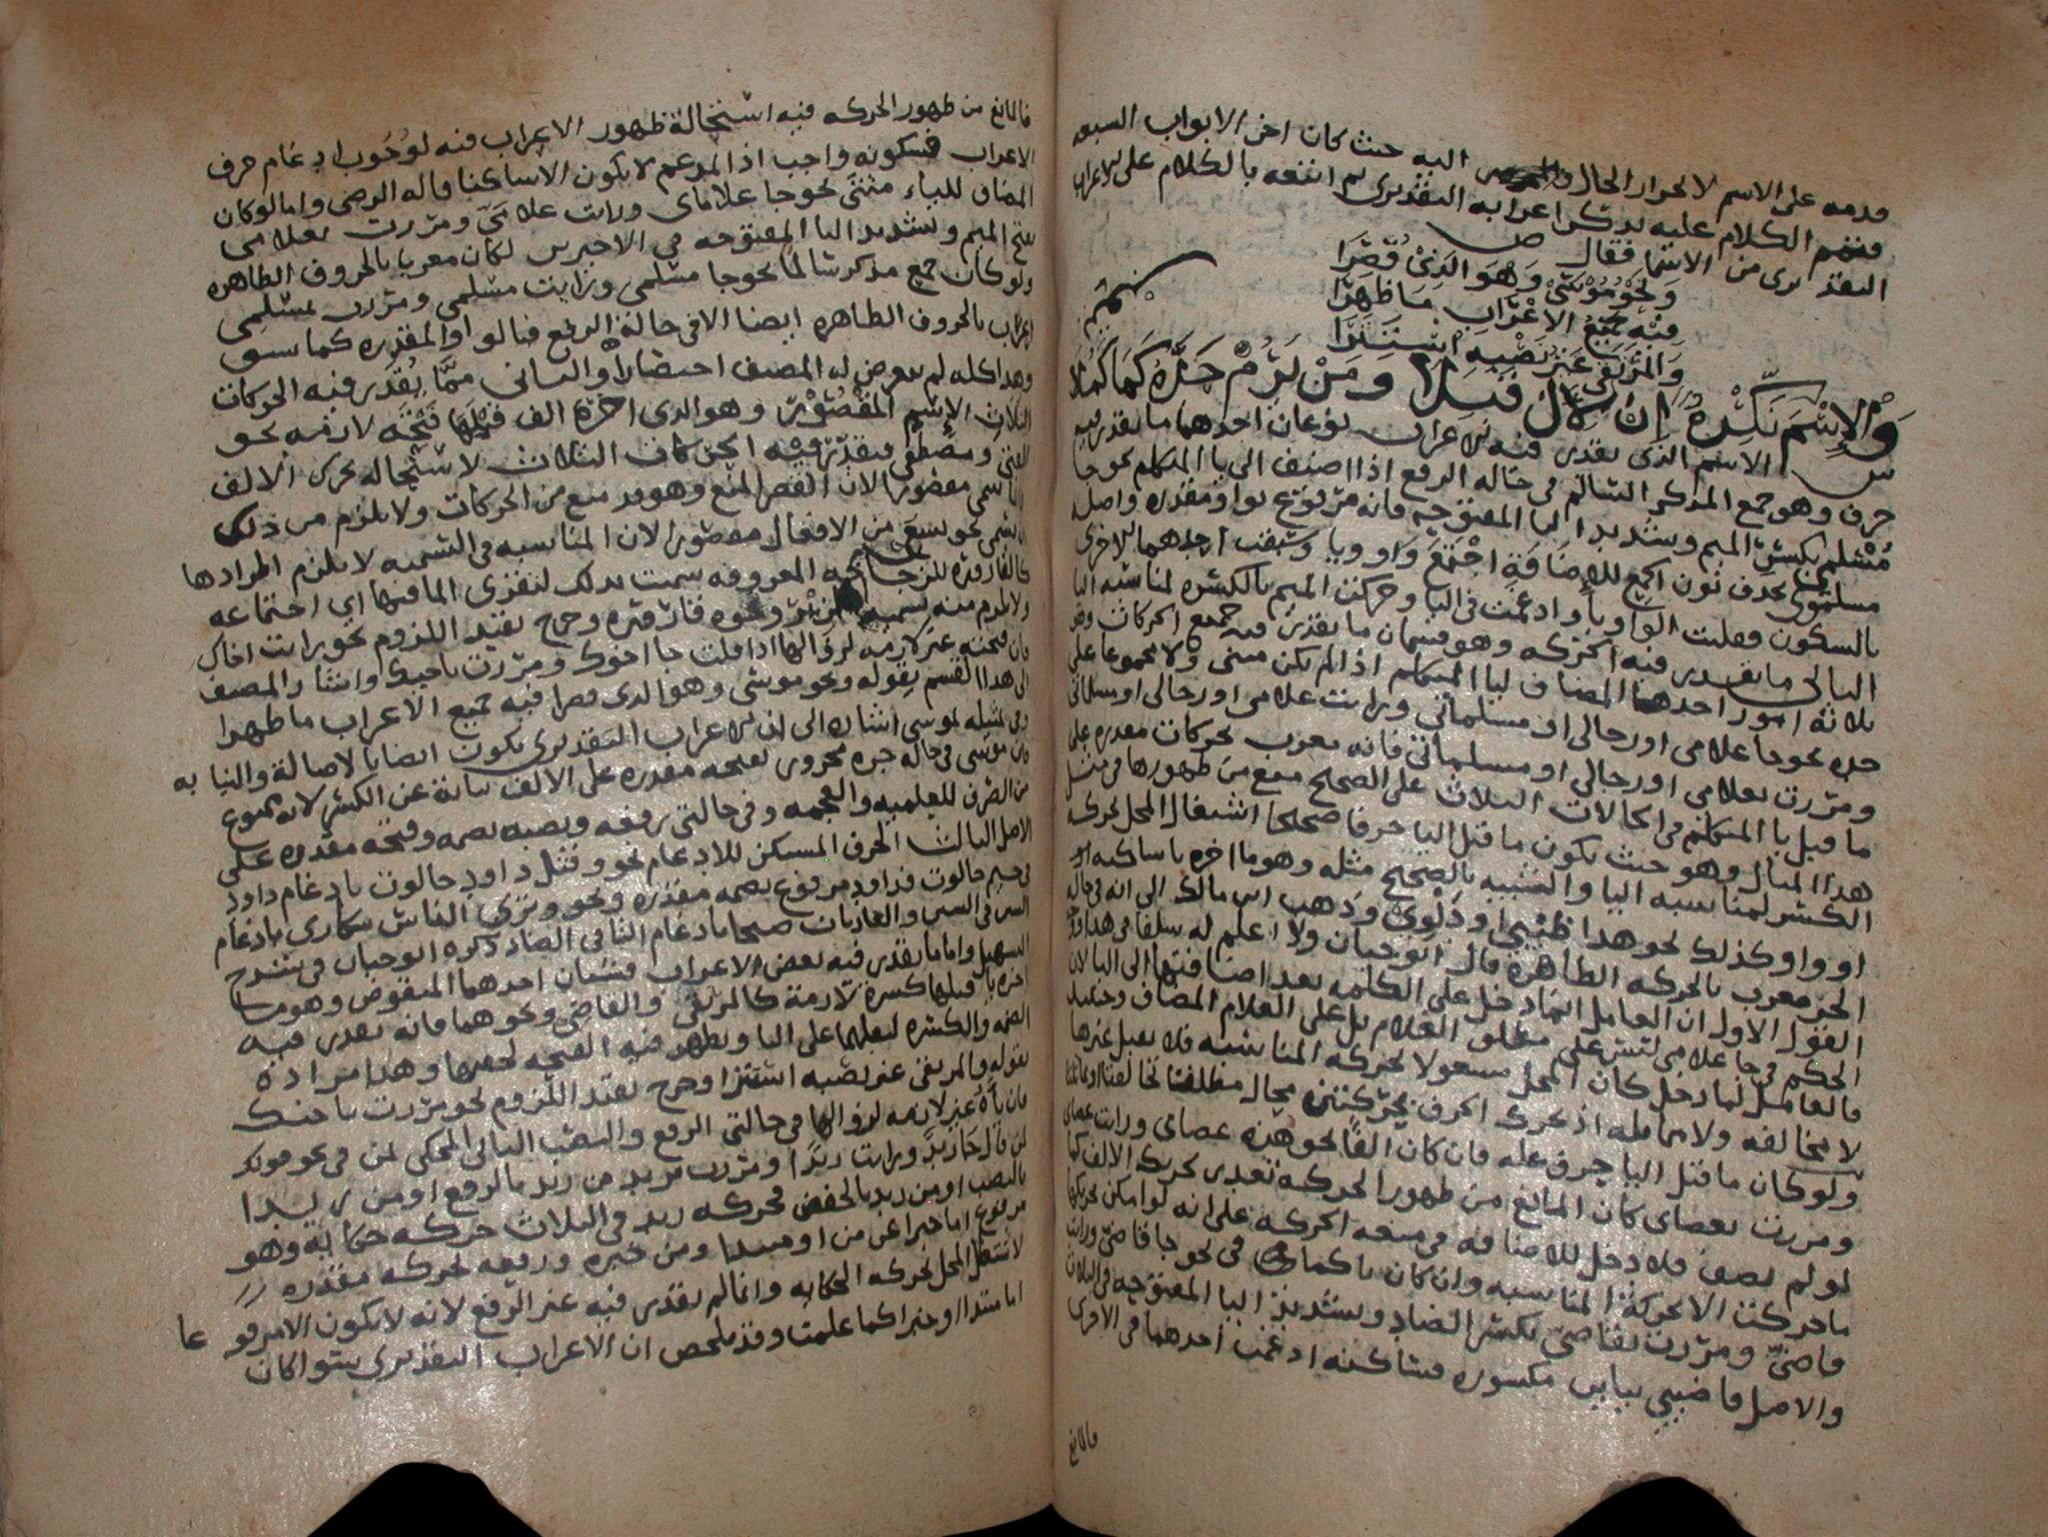 قدمه على الاسم لانجرار الحال اليه حيث كان اخر الابواب السبعه
فختم الكلام عليه بذكر اعرابه التقديري ثم اتبعه بالكلام على الاعراب
التقديري من الاسما فقال ص
وَنَحْوُ مُوْسَىْ وَهْوَ الَّذِيْ قُصِرَا
فِيْهِ جَمِيْعُ الاِعْرَابِ مَا ظَهَرَا
وَالمُرْتَقِي عَنْ نَصْبِهِ اسْتَتَرَا
وَالاِسْمَ نَكِّرْهُ اِنْ لِاَلْ قَبِلَا وَمَنْ يَرُمْ حَدَّهُ كَمَا كَمُلَا
س الاسم الذي يقدر فيه الاعراب نوعان احدهما ما يقدر فيه
حرف وهو جمع المذكر السالم في حاله الرفع اذا اضيف الى يا المتكلم نحو جا
مُسْلِمِيَّ بكسر الميم وتشديد اليا المفتوحه فانه مرفوع بواو مقدره واصله
مسلموي بحذف نون الجمع للاضافة اجتمع واو ويا وسبقت احدهما الاخرى
بالسكون فقلبت الواو يا وادغمت في اليا وحركت الميم بالكسره لمناسبه اليا
الثاني ما يقدر فيه الحركه وهو قسمان ما يقدر فيه جميع الحركات وهو
ثلاثة امور احدها المضاف ليا المتكلم اذا لم يكن مثنى ولا مجموعا على
حده نحو جا غلامي او رجالي او مسلماتي ورايت غلامي او رجالي او مسلماتي
ومررت بغلامي او رجالي او مسلماتي فانه معرب بحركات مقدره على
ما قبل يا المتكلم في الحالات الثلاث على الصحيح منع من ظهورها في مثل
هذا المثال وهو حيث يكون ما قبل اليا حرفا صحيحا اشتغال المحل بحركه
الكسر لمناسبه اليا والشبيه بالصحيح مثله وهو ما اخره يا ساكنه
او واو كذلك نحو هذا ظبيي ودلوي وذهب ابن مالك الى انه في حاله
الجر معرب بالحركه الظاهره قال ابو حيان ولا اعلم له سلفا في هذا
القول الاول ان العامل انما دخل على الكلمه بعد اضافتها الى اليا لان
الحكم في جا غلامي ليس على مطلق الغلام بل على الغلام المضاف وحينئذ
فالعامل لما دخل كان المحل مشغولا بحركه المناسبه فلا يقبل غيرها
لا مخالفه ولا مماثله اذ تحرك الحرف بحركتين محال مطلقا
ولو كان ما قبل اليا حرف عله فان كان الفا نحو هذه عصاي ورايت عصاي
ومررت بعصاي كان المانع من ظهور الحركه تعذر تحريك الالف كما
لو لم يضف فلا دخل للاضافه في منعه الحركه على انه لو امكن تحريكها
ما حركت الا بحركة المناسبه وان كان يا كما في نحو جا قاضي ورايت
قاضيَّ ومررت بقاضيّ بكسر الضاد وتشديد اليا المفتوحه في الثلاث
والاصل قاضيي بيايين مكسوره فساكنه ادغمت احدهما في الاخرى
فالمانع
فالمانع من ظهور الحركه فيه استحالة ظهور الاعراب فيه لوُجُوب ادغام حرف
الاعراب فسكونه واجب اذ المدغم لا يكون الا ساكنا قاله الرضي واما لو كان
المضاف للياء مثنى نحو جا غلاماي ورايت غلاميَّ ومررت بغلاميَّ
بفتح الميم وتشديد اليا المفتوحه في الاخيرين لكان معربا بالحروف الظاهره
ولو كان جمع مذكر سالما نحو جا مسلمي ورايت مسلمي ومررت بمسلمي
اعرب بالحروف الظاهره ايضا الا في حالة الرفع فبالواو المقدره كما سبق
وهذا كله لم يتعرض له المصنف اختصارا والثاني ممَّا يُقدَّر فيه الحركات
الثلاث الاسم المَقْصُوْرُ وهو الذي اخره الف قبلها فتحَه لازمه نحو
الفتى ومصطفى فيقدّر فيه الحركات الثلاث لاستحاله تحرك الالف
سمي مقصورا لان القصر المنع وهو قد منع من الحركات ولا يلزم من ذلك
ان يسمى نحو يسعى من الافعال مقصورا لان المناسبه في التسميه لا يلزم اطرادها
كالقاروره للزجاجه المعروفه سميت بذلك لتقرر الما فيها اي اجتماعه
ولا يلزم منه تسميه ونحوه قاروره وخرج بقيد اللزوم نحو رايت اخاك
فان فتحته غير لازمه لزوالها اذا قلت جا اخوك ومررت باخيك واشار المصنف
الى هذا القسم بقوله ونحو موسى وهو الذي قصرا فيه جميع الاعراب ما ظهرا
وفي تمثيله بموسى اشاره الى ان الاعراب التقديري يكون ايضا بالاصالة والنيابه
فان موسى في حاله جره مجرور بفتحه مقدره على الالف نيابة عن الكسر لانه ممنوع
من الصرف للعلميه والعجمه وفي حالتي رفعه ونصبه بضمه وفتحه مقدره على
الاصل الثالث الحرف المسكن للادغام نحو وقتل داود جالوت بادغام داود
في جيم جالوت فداود مرفوع بضمه مقدره ونحو وترى الناس سكارى بادغام
السين في السين والعاديات ضبحا بادغام التا في الضاد ذكره ابو حيان في شرح
التسهيل واما ما يقدر فيه بعض الاعراب فشيئان احدهما المنقوص وهو ما
اخره يا قبلها كسرة لازمة كالمرتقي والقاضي ونحوهما فانه يقدر فيه
الضمه والكسره لثقلهما على اليا ويظهر فيه الفتحه لخفتها وهذا مراده
بقوله والمرتقي عن نصبه استترا وخرج بقيد اللزوم نحو مررت باخيك
فان ياءه غير لازمه لزوالها في حالتي الرفع والنصب الثاني المحكي بمن في نحو قولك
لمن قال جا زيدٌ ورايت زيدًا ومررت بزيد من زيد بالرفع او من زيدا
بالنصب او من زيد بالخفض فحركه زيد في الثلاث حركه حكايه وهو
مرفوع اما خبرا عن من او مبتدا ومن خبره ورفعه بحركه مقدره
لاشتغال المحل بحركه الحكايه وانما لم يقدر فيه غير الرفع لانه لا يكون الا مرفوعا
اما مبتدا او خبرا كما علمت وقد تلخص ان الاعراب التقديري سوا كان